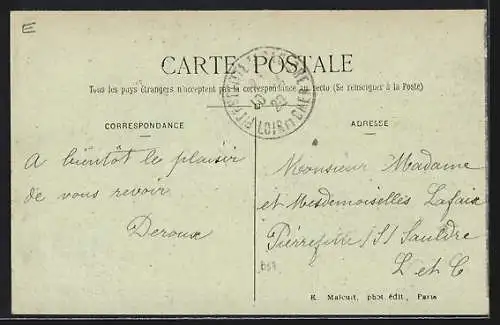 E
CARTE POSTALE
Tous les pays étrangers n'acceptent pas la correspondance au recto (Se renseigner à la Poste)
LOIR ET CHER
CORRESPONDANCE
ADRESSE
A bientôt le plaisir
de vous revoir
Deroux
Monsieur Madame
et Mesdemoiselles Lafaix
Pierrefitte /S/ Sauldre
L et C
B57
E. Malcuit, phot. édit., Paris